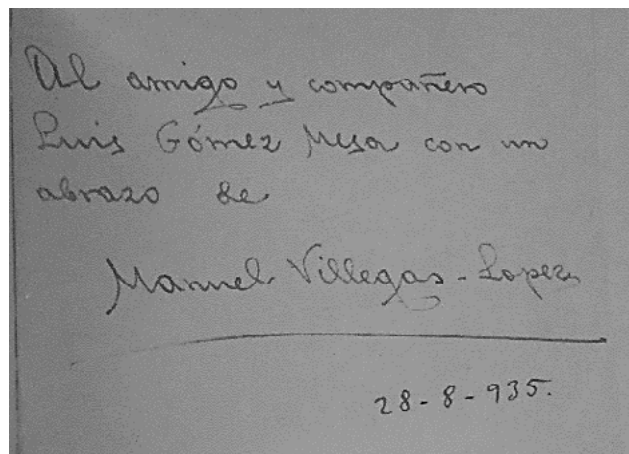 Al amigo y compañero
Luis Gómez Mesa con un
abrazo de
Manuel Villegas-Lopez
28-8-935.